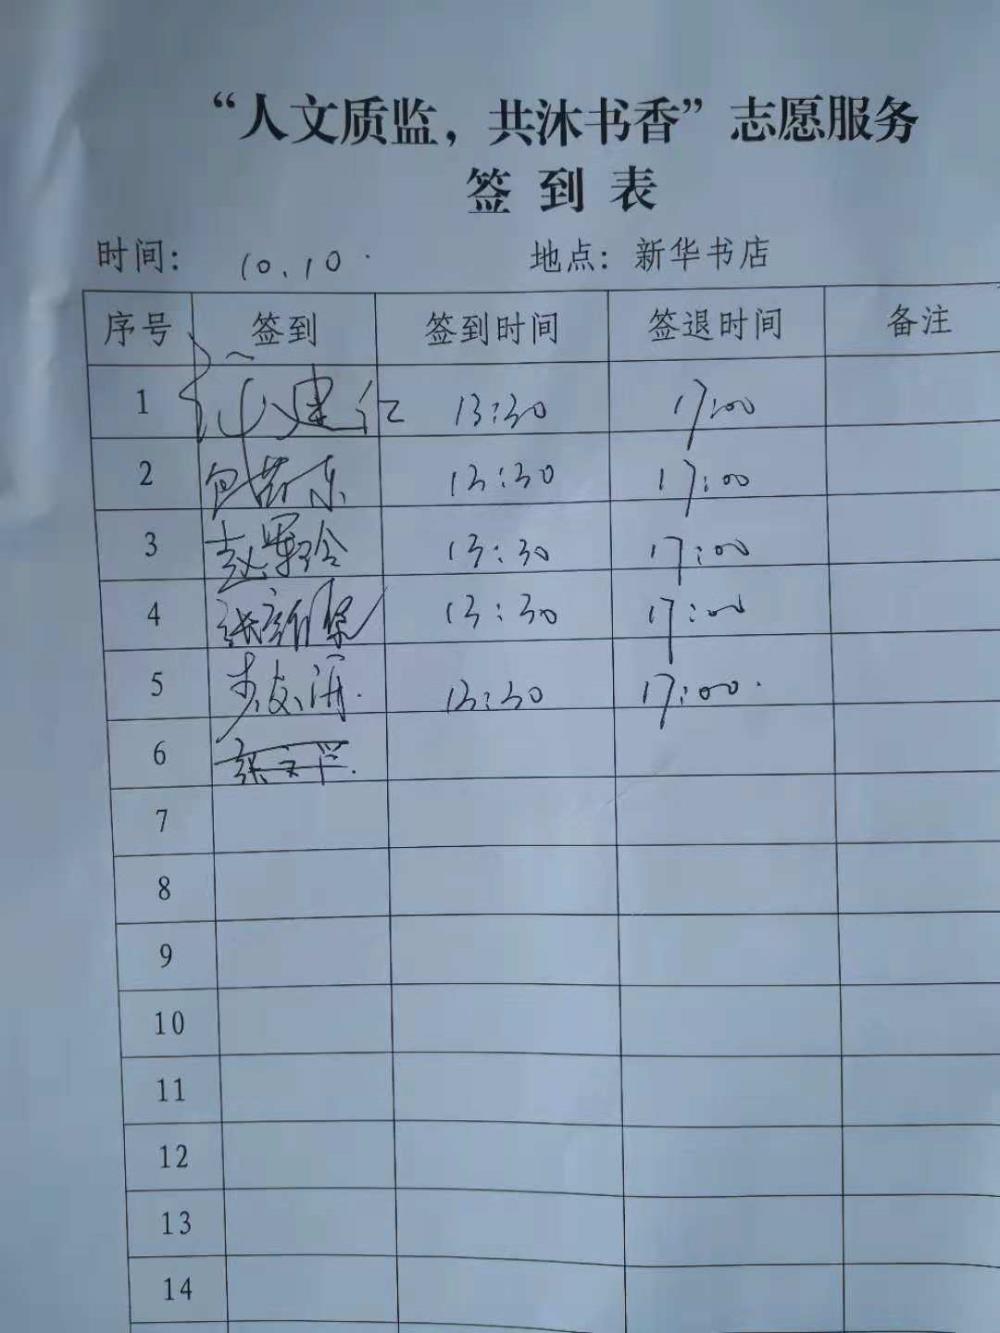 “人文质监，共沐书香”志愿服务
签到表
时间： 10.10. 地点：新华书店
序号 签到 签到时间 签退时间 备注
1 13:30 17:00
2 13:30 17:00
3 13:30 17:00
4 13:30 17:00
5 13:30 17:00.
6
7
8
9
10
11
12
13
14